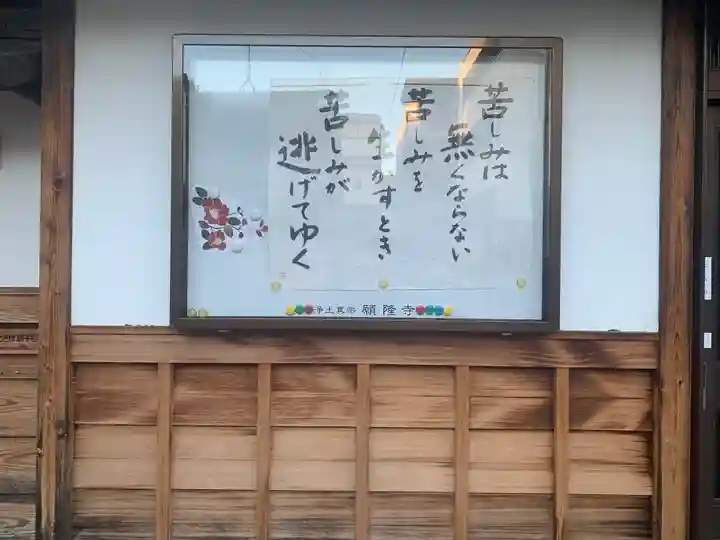 苦しみは
無くならない
苦しみを
生かすとき
苦しみが
逃げてゆく
浄土真宗 願隆寺